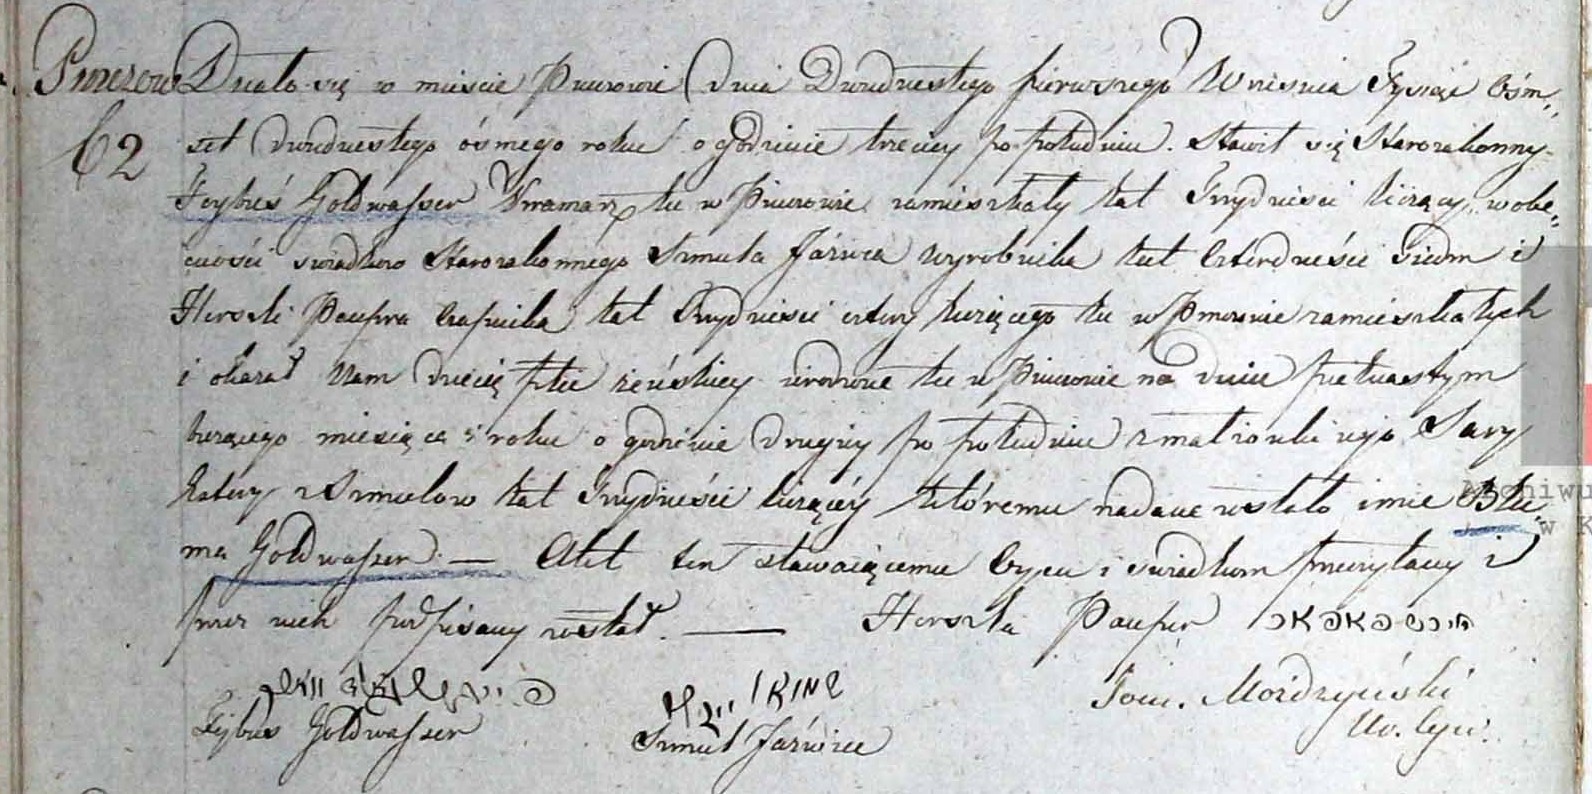 Pinczow Działo się w mieście Pinczowie dnia Dwudziestego pierwszego Wrzesnia Tysiąc Ośm,,
62 set dwudziestego ósmego roku o godzinie trzeciey po południu. Stawił się Starozakonny
Feybuś Goldwasser Kramarz tu w Pinczowie zamieszkały lat Trzydzieści liczący, w obe,,
cności swiadkow Starozakonnego Szmula Jaźwica wyrobnika lat Czterdzieście Siedm i
Herszli Paupra Czapnika lat Trzydzieści cztery liczącego tu w Pinczowie zamieszkałych
i okazał Nam dziecię płci zeńskiey urodzone tu w Pinczowie na dniu pietnastym
bieżącego miesiąca i roku o godzinie drugiey po południu z małzonki iego Sary
Ratery z Szmulow lat Trzydzieście liczącéy któremu nadane zostało imie Blu,,
ma Goldwasser — Akt ten stawaiącemu Oycu i swiadkom przeczytany i
przez nich podpisany został. — Herszla Pauper הירש פאפאר
Fejbus Goldwasser
Szmul Jaźwiec
Tom. Moidzyński